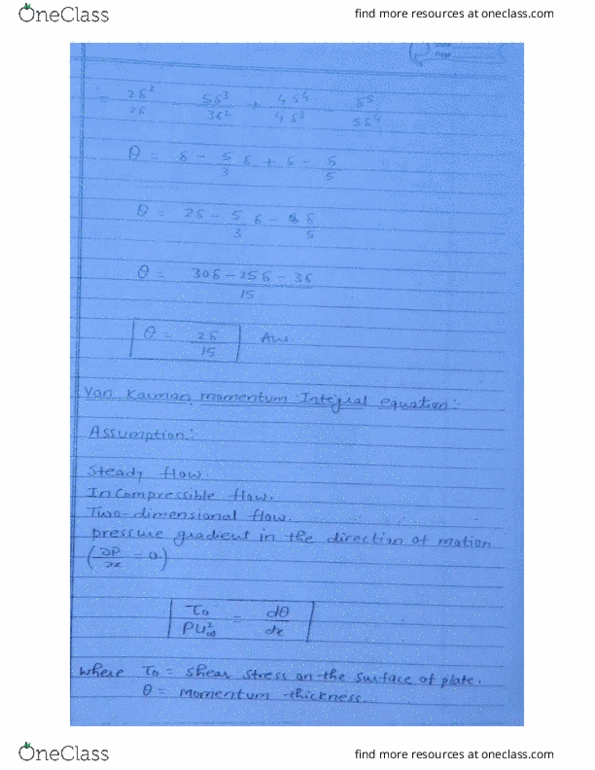 OneClass
find more resources at oneclass.com
= 2δ²/2δ - 5δ³/3δ² + 4δ⁴/4δ³ - δ⁵/5δ⁴
θ = δ - 5/3 δ + δ - δ/5
θ = 2δ - 5/3 δ - δ/5
θ = 30δ - 25δ - 3δ / 15
θ = 2δ/15 Ans.
Von Karman momentum Integral equation:-
Assumption:-
Steady flow.
InCompressible flow.
Two-dimensional flow.
pressure gradient in the direction of motion
(∂P/∂x = 0.)
τ₀/ρU²∞ = dθ/dx
where τ₀ = shear stress on the surface of plate.
θ = Momentum thickness.
OneClass
find more resources at oneclass.com